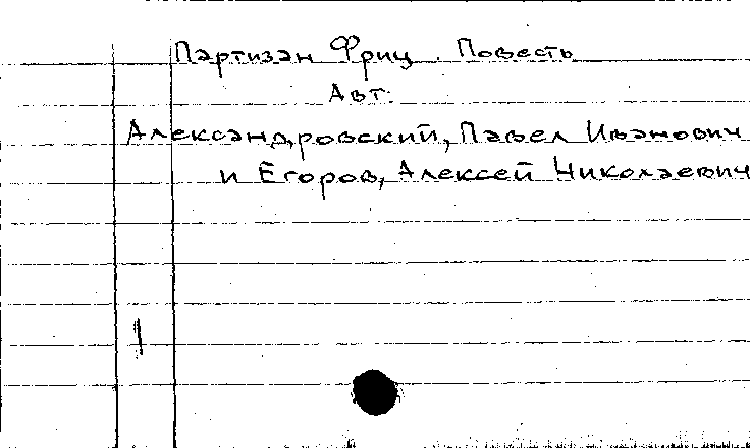 Партизан Фриц. Повесть
Авт.
Александровский, Павел Иванович
и Егоров, Алексей Николаевич